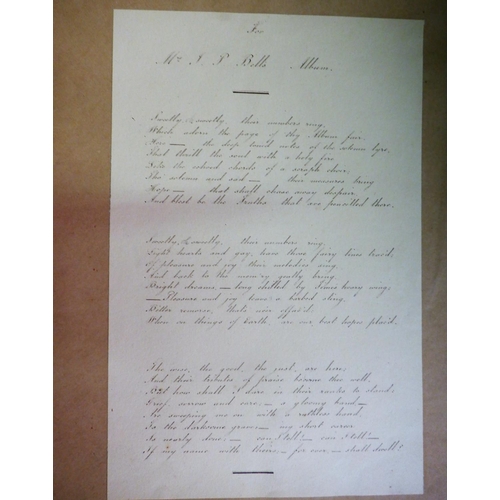 For
Mr J. P. Bells Album.
Sweetly, Sweetly, their numbers ring,
Which adorn the page of thy Album fair,
Here — the deep toned notes of the solemn lyre,
That thrill the soul with a holy fire
Like the echoed chords of a seraph choir.
The solemn and sad — their measures bring
Hope — that shall chase away despair
And blest be the Truths that are pencilled there.
Sweetly, Sweetly, their numbers ring,
Light hearts and gay, have these fairy lines traced,
Of pleasure and joy their melodies sing,
And back to the mem'ry gently bring
Bright dreams, — long chilled by Times hoary wing;
— Pleasure and joy leave a barbed sting,
Bitter
When in things of Earth, are our best hopes placed.
The wise, the good, the just, are here,
And their tributes of praise become thee well,
But how shall I dare in their ranks to stand,
Grief, sorrow and care, — a gloomy band —
Are sweeping me on with a ruthless hand,
To the darksome grave; — my short career
Is nearly done, — can I tell! — can I tell! —
If my name with thine — for ever, — shall dwell!